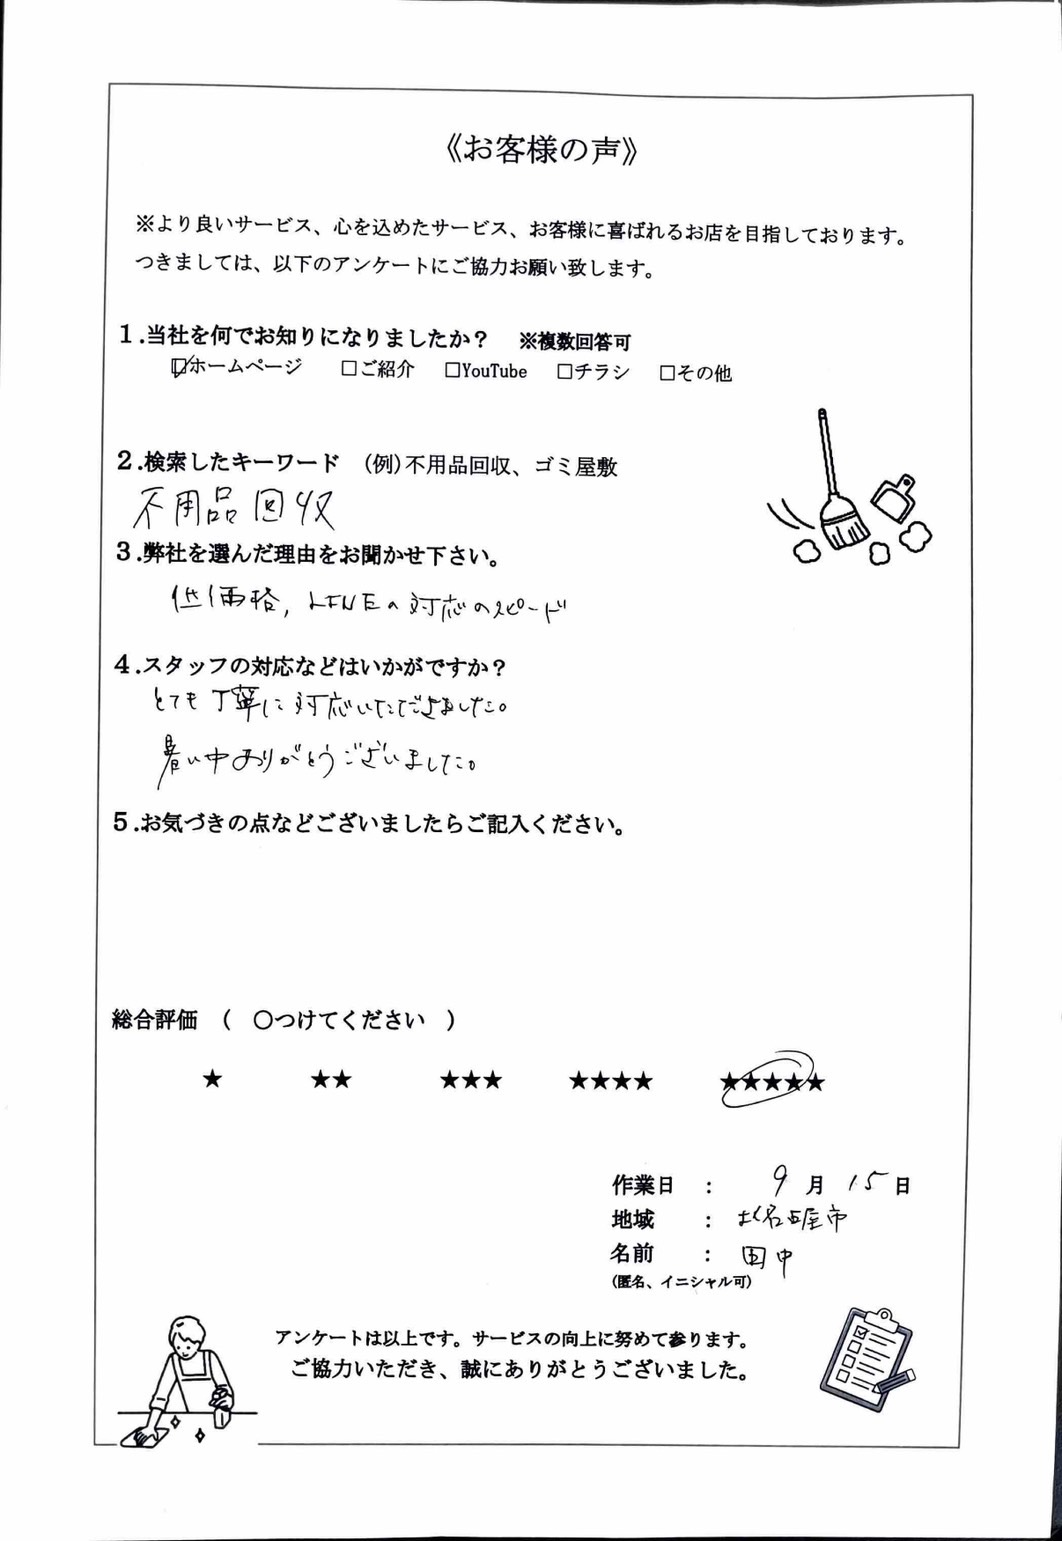 《お客様の声》
※より良いサービス、心を込めたサービス、お客様に喜ばれるお店を目指しております。
つきましては、以下のアンケートにご協力お願い致します。
1.当社を何でお知りになりましたか? ※複数回答可
☑ホームページ □ご紹介 □YouTube □チラシ □その他
2.検索したキーワード (例)不用品回収、ゴミ屋敷
不用品回収
3.弊社を選んだ理由をお聞かせ下さい。
低価格, LINEの対応のスピード
4.スタッフの対応などはいかがですか?
とても丁寧に対応いただきました。
暑い中ありがとうございました。
5.お気づきの点などございましたらご記入ください。
総合評価 ( ○つけてください )
★ ★★ ★★★ ★★★★ ★★★★★
作業日 : 9月15日
地域 : 北名古屋市
名前 : 田中
(匿名、イニシャル可)
アンケートは以上です。サービスの向上に努めて参ります。
ご協力いただき、誠にありがとうございました。